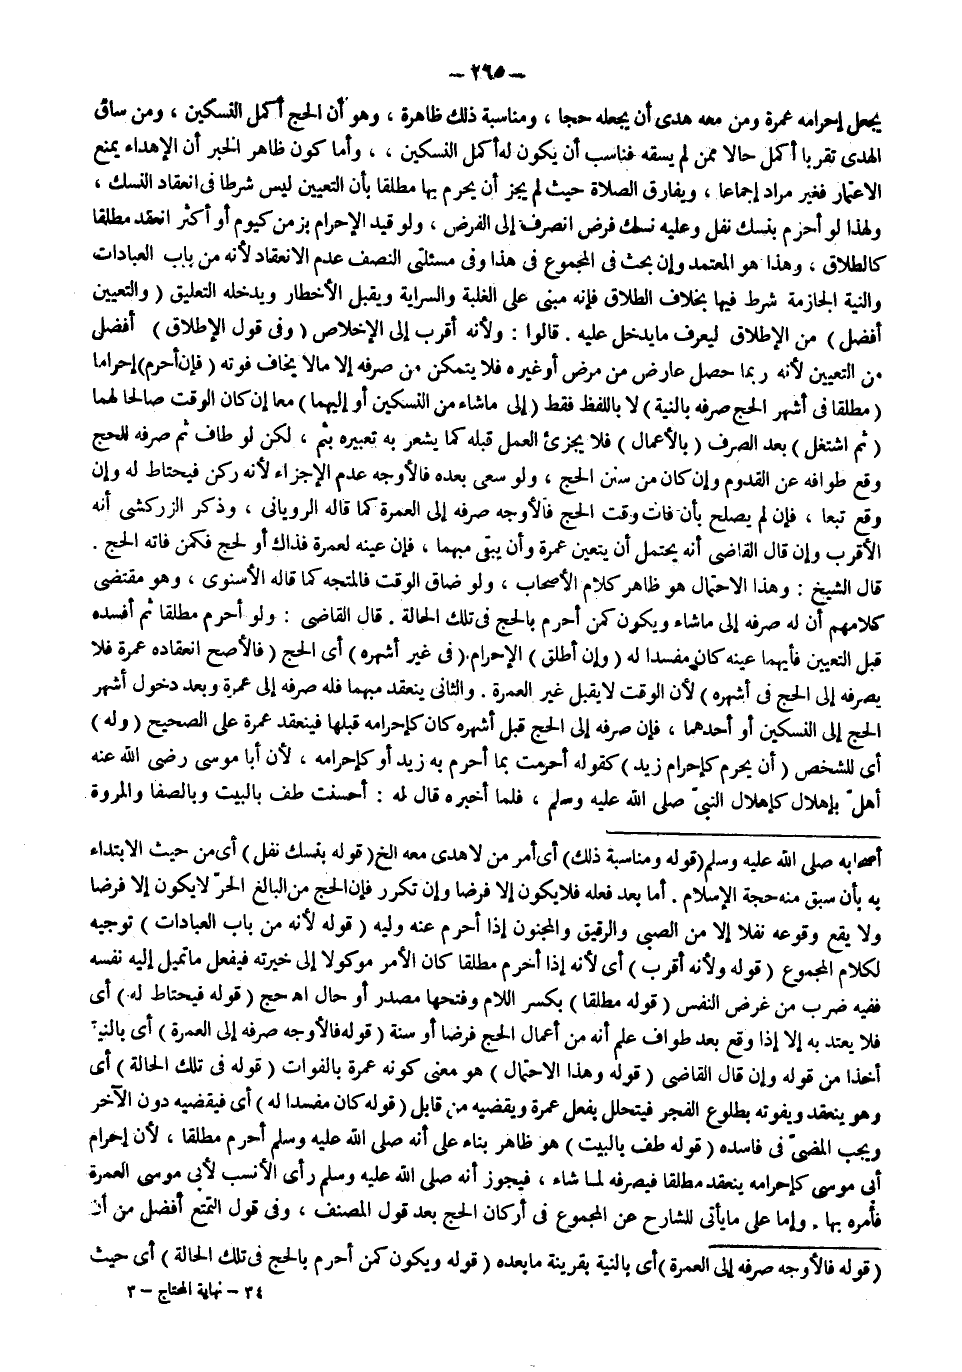 – ٢٦٥ –
يجعل إحرامه عمرة ومن معه هدى أن يجعله حجا ، ومناسبة ذلك ظاهرة ، وهو أن الحج أكمل النسكين ، ومن ساق
الهدى تقربا أكمل حالا ممن لم يسقه فناسب أن يكون له أكمل النسكين ، ، وأما كون ظاهر الخبر أن الإهداء يمنع
الاعتمار فغير مراد إجماعا ، ويفارق الصلاة حيث لم يجز أن يحرم بها مطلقا بأن التعيين ليس شرطا فى انعقاد النسك ،
ولهذا لو أحرم بنسك نفل وعليه نسك فرض انصرف إلى الفرض ، ولو قيد الإحرام بزمن كيوم أو أكثر انعقد مطلقا
كالطلاق ، وهذا هو المعتمد وإن بحث فى المجموع فى هذا وفى مسئلتى النصف عدم الانعقاد لأنه من باب العبادات
والنية الجازمة شرط فيها بخلاف الطلاق فإنه مبنى على الغلبة والسراية ويقبل الأخطار ويدخله التعليق ( والتعيين
أفضل ) من الإطلاق ليعرف مايدخل عليه . قالوا : ولأنه أقرب إلى الإخلاص ( وفى قول الإطلاق ) أفضل
من التعيين لأنه ربما حصل عارض من مرض أو غيره فلا يتمكن من صرفه إلا مالا يخاف فوته ( فإن أحرم) إحراما
( مطلقا فى أشهر الحج صرفه بالنية ) لا باللفظ فقط ( إلى ماشاء من النسكين أو إليهما ) معا إن كان الوقت صالحا لهما
( ثم اشتغل ) بعد الصرف ( بالأعمال ) فلا يجزئ العمل قبله كما يشعر به تعبيره بثم ، لكن لو طاف ثم صرفه للحج
وقع طوافه عن القدوم وإن كان من سنن الحج ، ولو سعى بعده فالأوجه عدم الإجزاء لأنه ركن فيحتاط له وإن
وقع تبعا ، فإن لم يصلح بأن فات وقت الحج فالأوجه صرفه إلى العمرة كما قاله الرويانى ، وذكر الزركشى أنه
الأقرب وإن قال القاضى أنه يحتمل أن يتعين عمرة وأن يبقى مبهما ، فإن عينه لعمرة فذاك أو لحج فكمن فاته الحج .
قال الشيخ : وهذا الاحتمال هو ظاهر كلام الأصحاب ، ولو ضاق الوقت فالمتجه كما قاله الأسنوى ، وهو مقتضى
كلامهم أن له صرفه إلى ماشاء ويكون كمن أحرم بالحج فى تلك الحالة . قال القاضى : ولو أحرم مطلقا ثم أفسده
قبل التعيين فأيهما عينه كان مفسدا له ( وإن أطلق ) الإحرام ( فى غير أشهره ) أى الحج ( فالأصح انعقاده عمرة فلا
يصرفه إلى الحج فى أشهره ) لأن الوقت لايقبل غير العمرة . والثانى ينعقد مبهما فله صرفه إلى عمرة وبعد دخول أشهر
الحج إلى النسكين أو أحدهما ، فإن صرفه إلى الحج قبل أشهره كان كإحرامه قبلها فينعقد عمرة على الصحيح ( وله )
أى للشخص ( أن يحرم كإحرام زيد ) كقوله أحرمت بما أحرم به زيد أو كإحرامه ، لأن أبا موسى رضى الله عنه
أهلّ بإهلال كإهلال النبىّ صلى الله عليه وسلم ، فلما أخبره قال له : أحسنت طف بالبيت وبالصفا والمروة
أصحابه صلى الله عليه وسلم (قوله ومناسبة ذلك) أى أمر من لاهدى معه الخ (قوله بنسك نفل) أى من حيث الابتداء
به بأن سبق منه حجة الإسلام . أما بعد فعله فلايكون إلا فرضا وإن تكرر فإن الحج من البالغ الحرّ لايكون إلا فرضا
ولا يقع وقوعه نفلا إلا من الصبى والرقيق والمجنون إذا أحرم عنه وليه ( قوله لأنه من باب العبادات ) توجيه
لكلام المجموع ( قوله ولأنه أقرب ) أى لأنه إذا أحرم مطلقا كان الأمر موكولا إلى خيرته فيفعل ماتميل إليه نفسه
ففيه ضرب من غرض النفس ( قوله مطلقا ) بكسر اللام وفتحها مصدر أو حال اه حج ( قوله فيحتاط له ) أى
فلا يعتد به إلا إذا وقع بعد طواف علم أنه من أعمال الحج فرضا أو سنة ( قوله فالأوجه صرفه إلى العمرة ) أى بالنية
أخذا من قوله وإن قال القاضى ( قوله وهذا الاحتمال ) هو معنى كونه عمرة بالفوات ( قوله فى تلك الحالة ) أى
وهو ينعقد ويفوته بطلوع الفجر فيتحلل بفعل عمرة ويقضيه من قابل ( قوله كان مفسدا له ) أى فيقضيه دون الآخر
ويجب المضىّ فى فاسده ( قوله طف بالبيت ) هو ظاهر بناء على أنه صلى الله عليه وسلم أحرم مطلقا ، لأن إحرام
أبى موسى كإحرامه ينعقد مطلقا فيصرفه لما شاء ، فيجوز أنه صلى الله عليه وسلم رأى الأنسب لأبى موسى العمرة
فأمره بها . وإما على مايأتى للشارح عن المجموع فى أركان الحج بعد قول المصنف ، وفى قول التمتع أفضل من أن
( قوله فالأوجه صرفه إلى العمرة ) أى بالنية بقرينة مابعده ( قوله ويكون كمن أحرم بالحج فى تلك الحالة ) أى حيث
٣٤ – نهاية المحتاج – ٣